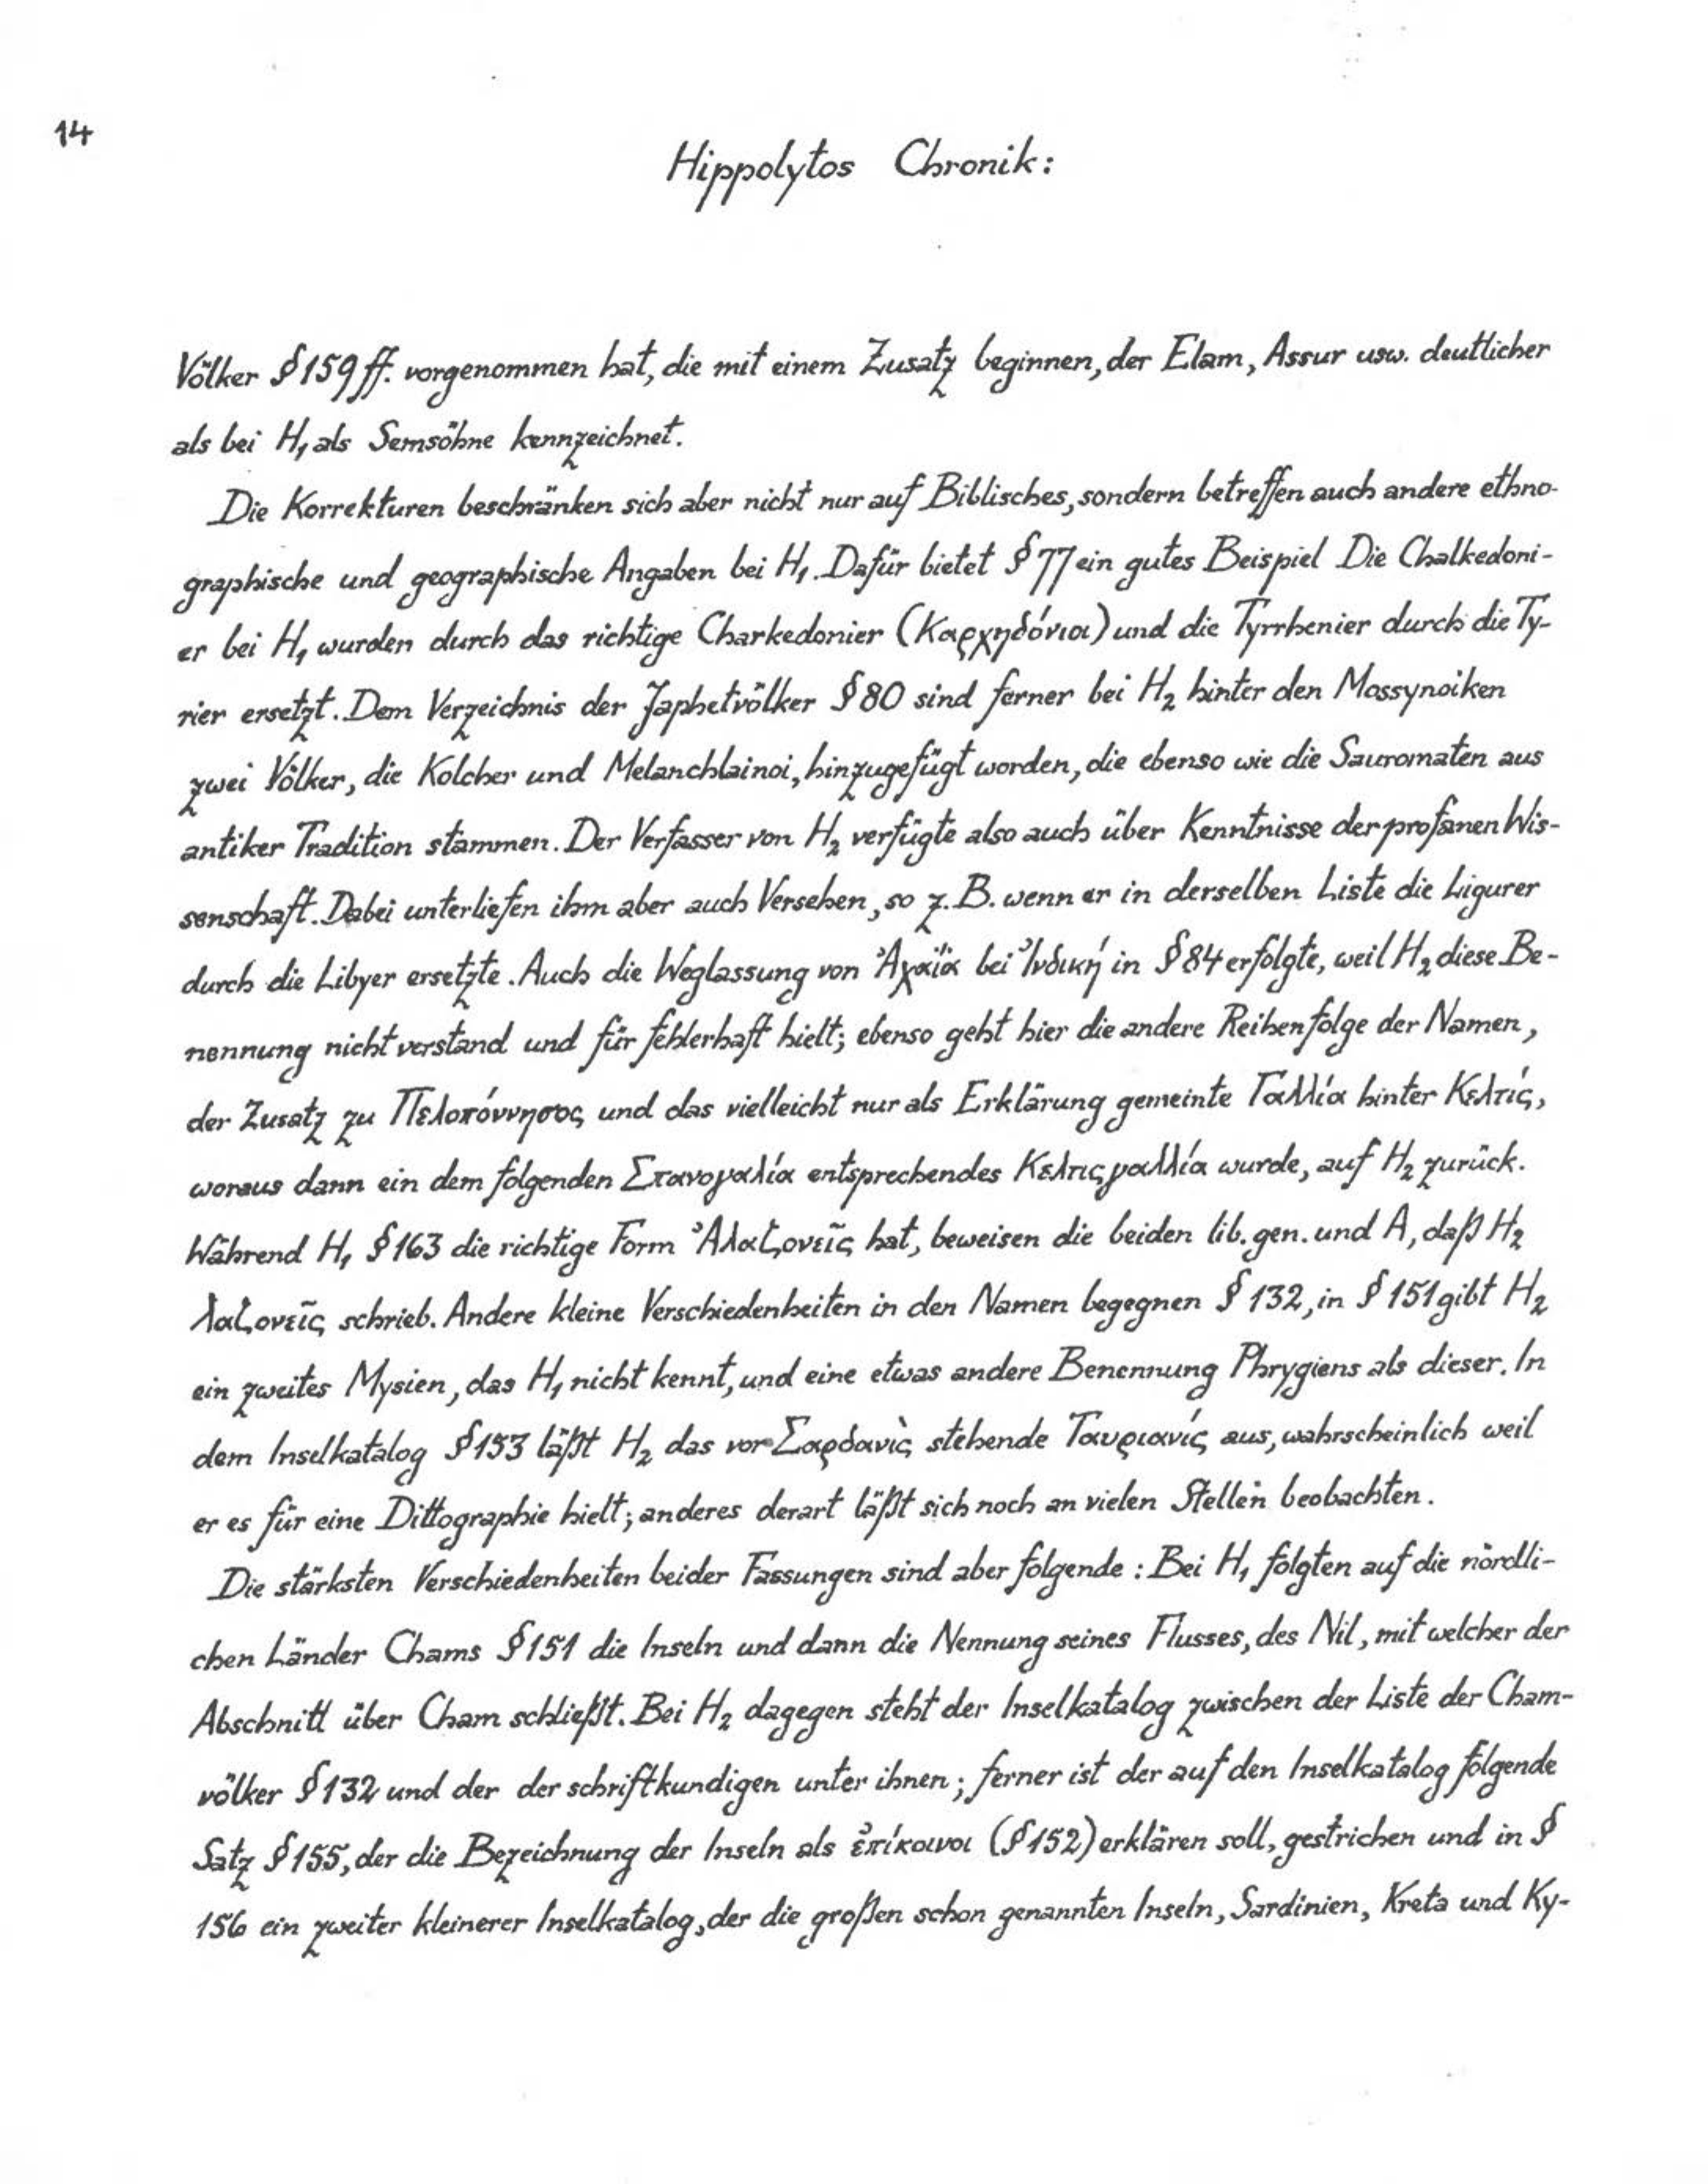 14
Hippolytos Chronik:
Völker § 159 ff. vorgenommen hat, die mit einem Zusatz beginnen, der Elam, Assur usw. deutlicher
als bei H₁ als Semsöhne kennzeichnet.
Die Korrekturen beschränken sich aber nicht nur auf Biblisches, sondern betreffen auch andere ethno-
graphische und geographische Angaben bei H₁. Dafür bietet § 77 ein gutes Beispiel Die Chalkedoni-
er bei H₁ wurden durch das richtige Charkedonier (Καρχηδόνιοι) und die Tyrrhenier durch die Ty-
rier ersetzt. Dem Verzeichnis der Japhetvölker § 80 sind ferner bei H₂ hinter den Mossynoiken
zwei Völker, die Kolcher und Melanchlainoi, hinzugefügt worden, die ebenso wie die Sauromaten aus
antiker Tradition stammen. Der Verfasser von H₂ verfügte also auch über Kenntnisse der profanen Wis-
senschaft. Dabei unterliefen ihm aber auch Versehen, so z. B. wenn er in derselben Liste die Ligurer
durch die Libyer ersetzte. Auch die Weglassung von Ἀχαΐα bei Ἰνδική in § 84 erfolgte, weil H₂ diese Be-
nennung nicht verstand und für fehlerhaft hielt; ebenso geht hier die andere Reihenfolge der Namen,
der Zusatz zu Πελοπόννησος und das vielleicht nur als Erklärung gemeinte Γαλλία hinter Κελτίς,
woraus dann ein dem folgenden Σπανογαλία entsprechendes Κελτιςγαλλία wurde, auf H₂ zurück.
Während H₁ § 163 die richtige Form Ἀλαζονεῖς hat, beweisen die beiden lib. gen. und A, daß H₂
λαζονεῖς schrieb. Andere kleine Verschiedenheiten in den Namen begegnen § 132, in § 151 gibt H₂
ein zweites Mysien, das H₁ nicht kennt, und eine etwas andere Benennung Phrygiens als dieser. In
dem Inselkatalog § 153 läßt H₂ das vor Σαρδανὶς stehende Ταυριανίς aus, wahrscheinlich weil
er es für eine Dittographie hielt; anderes derart läßt sich noch an vielen Stellen beobachten.
Die stärksten Verschiedenheiten beider Fassungen sind aber folgende: Bei H₁ folgten auf die nördli-
chen Länder Chams § 151 die Inseln und dann die Nennung seines Flusses, des Nil, mit welcher der
Abschnitt über Cham schließt. Bei H₂ dagegen steht der Inselkatalog zwischen der Liste der Cham-
völker § 132 und der der schriftkundigen unter ihnen; ferner ist der auf den Inselkatalog folgende
Satz § 155, der die Bezeichnung der Inseln als ἐπίκοινοι (§ 152) erklären soll, gestrichen und in §
156 ein zweiter kleinerer Inselkatalog, der die großen schon genannten Inseln, Sardinien, Kreta und Ky-